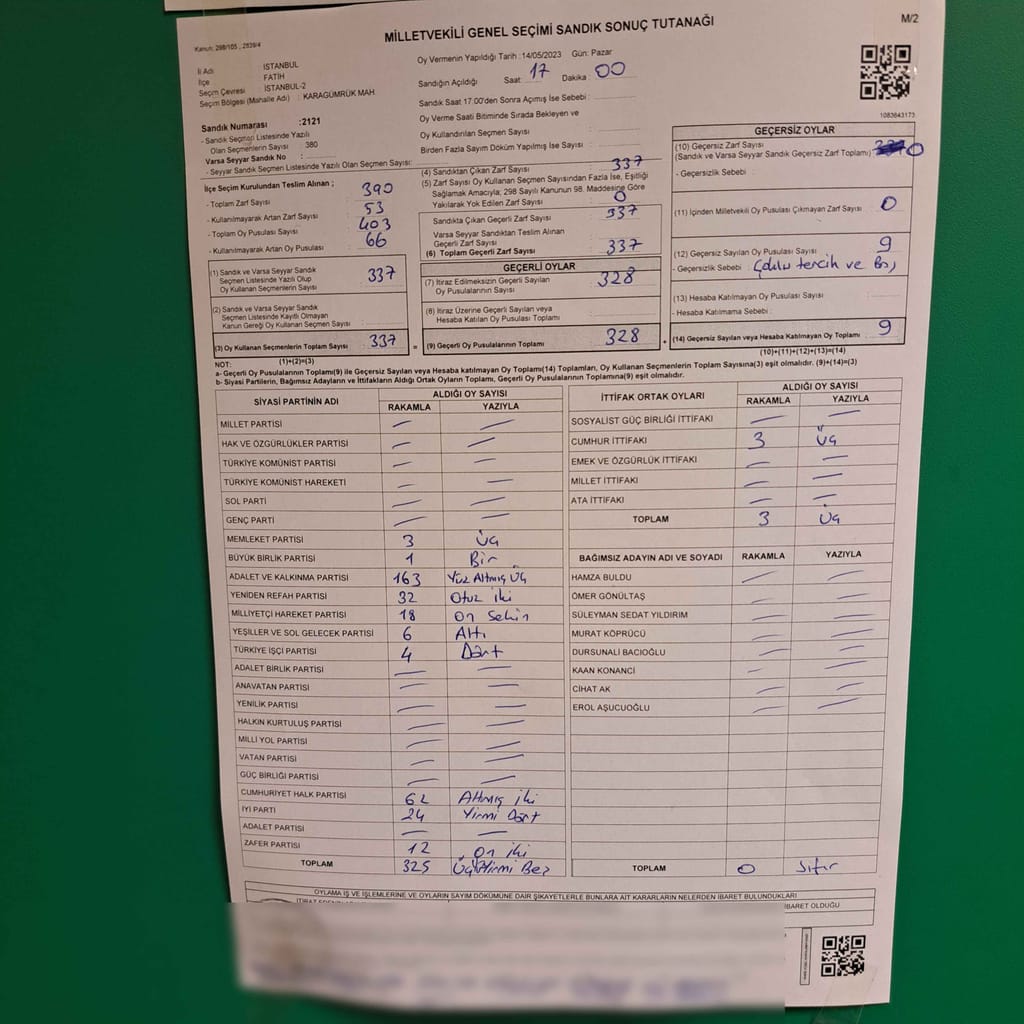 M/2
MİLLETVEKİLİ GENEL SEÇİMİ SANDIK SONUÇ TUTANAĞI
Kanun: 298/105 , 2839/4
İl Adı : İSTANBUL
İlçe : FATİH
Seçim Çevresi : İSTANBUL-2
Seçim Bölgesi (Mahalle Adı) : KARAGÜMRÜK MAH.
Oy Vermenin Yapıldığı Tarih :14/05/2023 Gün: Pazar
Sandığın Açıldığı Saat: 17 Dakika: 00
Sandık Saat 17:00'den Sonra Açmış İse Sebebi :
Oy Verme Saati Bitiminde Sırada Bekleyen ve
Oy Kullandırılan Seçmen Sayısı :
Birden Fazla Sayım Döküm Yapılmış İse Sayısı :
1083643173
Sandık Numarası :2121
- Sandık Seçmen Listesinde Yazılı
Olan Seçmenlerin Sayısı : 380
Varsa Seyyar Sandık No :
- Seyyar Sandık Seçmen Listesinde Yazılı Olan Seçmen Sayısı:
İlçe Seçim Kurulundan Teslim Alınan ;
- Toplam Zarf Sayısı : 390
- Kullanılmayarak Artan Zarf Sayısı : 53
- Toplam Oy Pusulası Sayısı : 403
- Kullanılmayarak Artan Oy Pusulası : 66
(1) Sandık ve Varsa Seyyar Sandık
Seçmen Listesinde Yazılı Olup
Oy Kullanan Seçmenlerin Sayısı : 337
(2) Sandık ve Varsa Seyyar Sandık
Seçmen Listesinde Kayıtlı Olmayan
Kanun Gereği Oy Kullanan Seçmen Sayısı :
(3) Oy Kullanan Seçmenlerin Toplam Sayısı : 337
(1)+(2)=(3)
(4) Sandıktan Çıkan Zarf Sayısı : 337
(5) Zarf Sayısı Oy Kullanan Seçmen Sayısından Fazla İse, Eşitliği
Sağlamak Amacıyla; 298 Sayılı Kanunun 98. Maddesine Göre
Yakılarak Yok Edilen Zarf Sayısı : 0
Sandıkta Çıkan Geçerli Zarf Sayısı : 337
Varsa Seyyar Sandıktan Teslim Alınan
Geçerli Zarf Sayısı :
(6) Toplam Geçerli Zarf Sayısı : 337
GEÇERLİ OYLAR
(7) İtiraz Edilmeksizin Geçerli Sayılan
Oy Pusulalarının Sayısı : 328
(8) İtiraz Üzerine Geçerli Sayılan veya
Hesaba Katılan Oy Pusulası Toplamı :
= (9) Geçerli Oy Pusulalarının Toplamı : 328 +
GEÇERSİZ OYLAR
(10) Geçersiz Zarf Sayısı
(Sandık ve Varsa Seyyar Sandık Geçersiz Zarf Toplamı) : 0
- Geçersizlik Sebebi :
(11) İçinden Milletvekili Oy Pusulası Çıkmayan Zarf Sayısı : 0
(12) Geçersiz Sayılan Oy Pusulası Sayısı : 9
- Geçersizlik Sebebi : Çoklu tercih ve Boş
(13) Hesaba Katılmayan Oy Pusulası Sayısı :
- Hesaba Katılmama Sebebi :
(14) Geçersiz Sayılan veya Hesaba Katılmayan Oy Toplamı : 9
(10)+(11)+(12)+(13)=(14)
NOT:
a- Geçerli Oy Pusulalarının Toplamı(9) ile Geçersiz Sayılan veya Hesaba Katılmayan Oy Toplamı(14) Toplamları, Oy Kullanan Seçmenlerin Toplam Sayısına(3) eşit olmalıdır. (9)+(14)=(3)
b- Siyasi Partilerin, Bağımsız Adayların ve İttifakların Aldığı Ortak Oyların Toplamı, Geçerli Oy Pusulalarının Toplamına(9) eşit olmalıdır.
SİYASİ PARTİNİN ADI ALDIĞI OY SAYISI
RAKAMLA YAZIYLA
MİLLET PARTİSİ — —
HAK VE ÖZGÜRLÜKLER PARTİSİ — —
TÜRKİYE KOMÜNİST PARTİSİ — —
TÜRKİYE KOMÜNİST HAREKETİ — —
SOL PARTİ — —
GENÇ PARTİ — —
MEMLEKET PARTİSİ 3 Üç
BÜYÜK BİRLİK PARTİSİ 1 Bir
ADALET VE KALKINMA PARTİSİ 163 Yüz Altmış Üç
YENİDEN REFAH PARTİSİ 32 Otuz iki
MİLLİYETÇİ HAREKET PARTİSİ 18 On Sekiz
YEŞİLLER VE SOL GELECEK PARTİSİ 6 Altı
TÜRKİYE İŞÇİ PARTİSİ 4 Dört
ADALET BİRLİK PARTİSİ — —
ANAVATAN PARTİSİ — —
YENİLİK PARTİSİ — —
HALKIN KURTULUŞ PARTİSİ — —
MİLLİ YOL PARTİSİ — —
VATAN PARTİSİ — —
GÜÇ BİRLİĞİ PARTİSİ — —
CUMHURİYET HALK PARTİSİ 62 Altmış iki
İYİ PARTİ 24 Yirmi Dört
ADALET PARTİSİ — —
ZAFER PARTİSİ 12 On iki
TOPLAM 325 ÜçYüzYirmi Beş
İTTİFAK ORTAK OYLARI ALDIĞI OY SAYISI
RAKAMLA YAZIYLA
SOSYALİST GÜÇ BİRLİĞİ İTTİFAKI — —
CUMHUR İTTİFAKI 3 Üç
EMEK VE ÖZGÜRLÜK İTTİFAKI — —
MİLLET İTTİFAKI — —
ATA İTTİFAKI — —
TOPLAM 3 Üç
BAĞIMSIZ ADAYIN ADI VE SOYADI RAKAMLA YAZIYLA
HAMZA BULDU — —
ÖMER GÖNÜLTAŞ — —
SÜLEYMAN SEDAT YILDIRIM — —
MURAT KÖPRÜCÜ — —
DURSUNALİ BACIOĞLU — —
KAAN KONANCİ — —
CİHAT AK — —
EROL AŞUCUOĞLU — —
TOPLAM 0 Sıfır
OYLAMA İŞ VE İŞLEMLERİNE VE OYLARIN SAYIM DÖKÜMÜNE DAİR ŞİKAYETLERLE BUNLARA AİT KARARLARIN NELERDEN İBARET BULUNDUKLARI
İBARET OLDUĞU